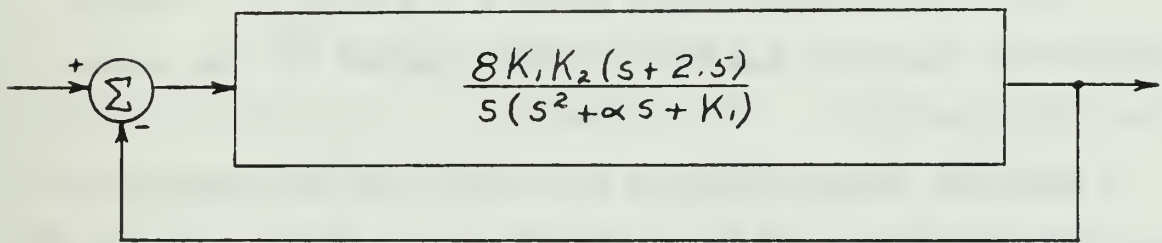 +
Σ
-
8 K₁ K₂ (s + 2.5)
s (s² + α s + K₁)